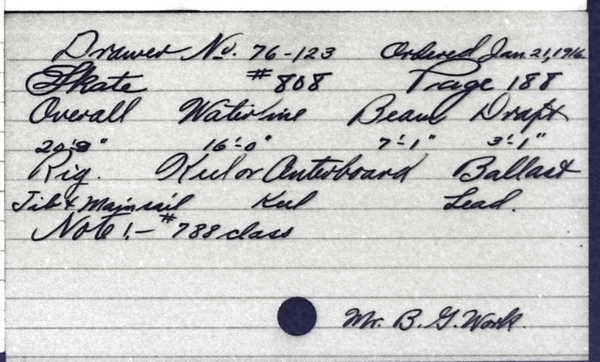 Drawer No. 76-123 Ordered Jan 21, 1916
Skate #808 Page 188
Overall Waterline Beam Draft
20'9" 16'-0" 7'-1" 3'-1"
Rig. Keel or Centerboard Ballast
Jib & Mainsail Keel Lead.
Note:- #788 class
Mr. B. G. Work.